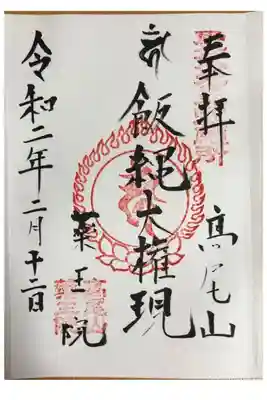 奉拝
高尾山
飯縄大権現
薬王院
令和二年二月十二日